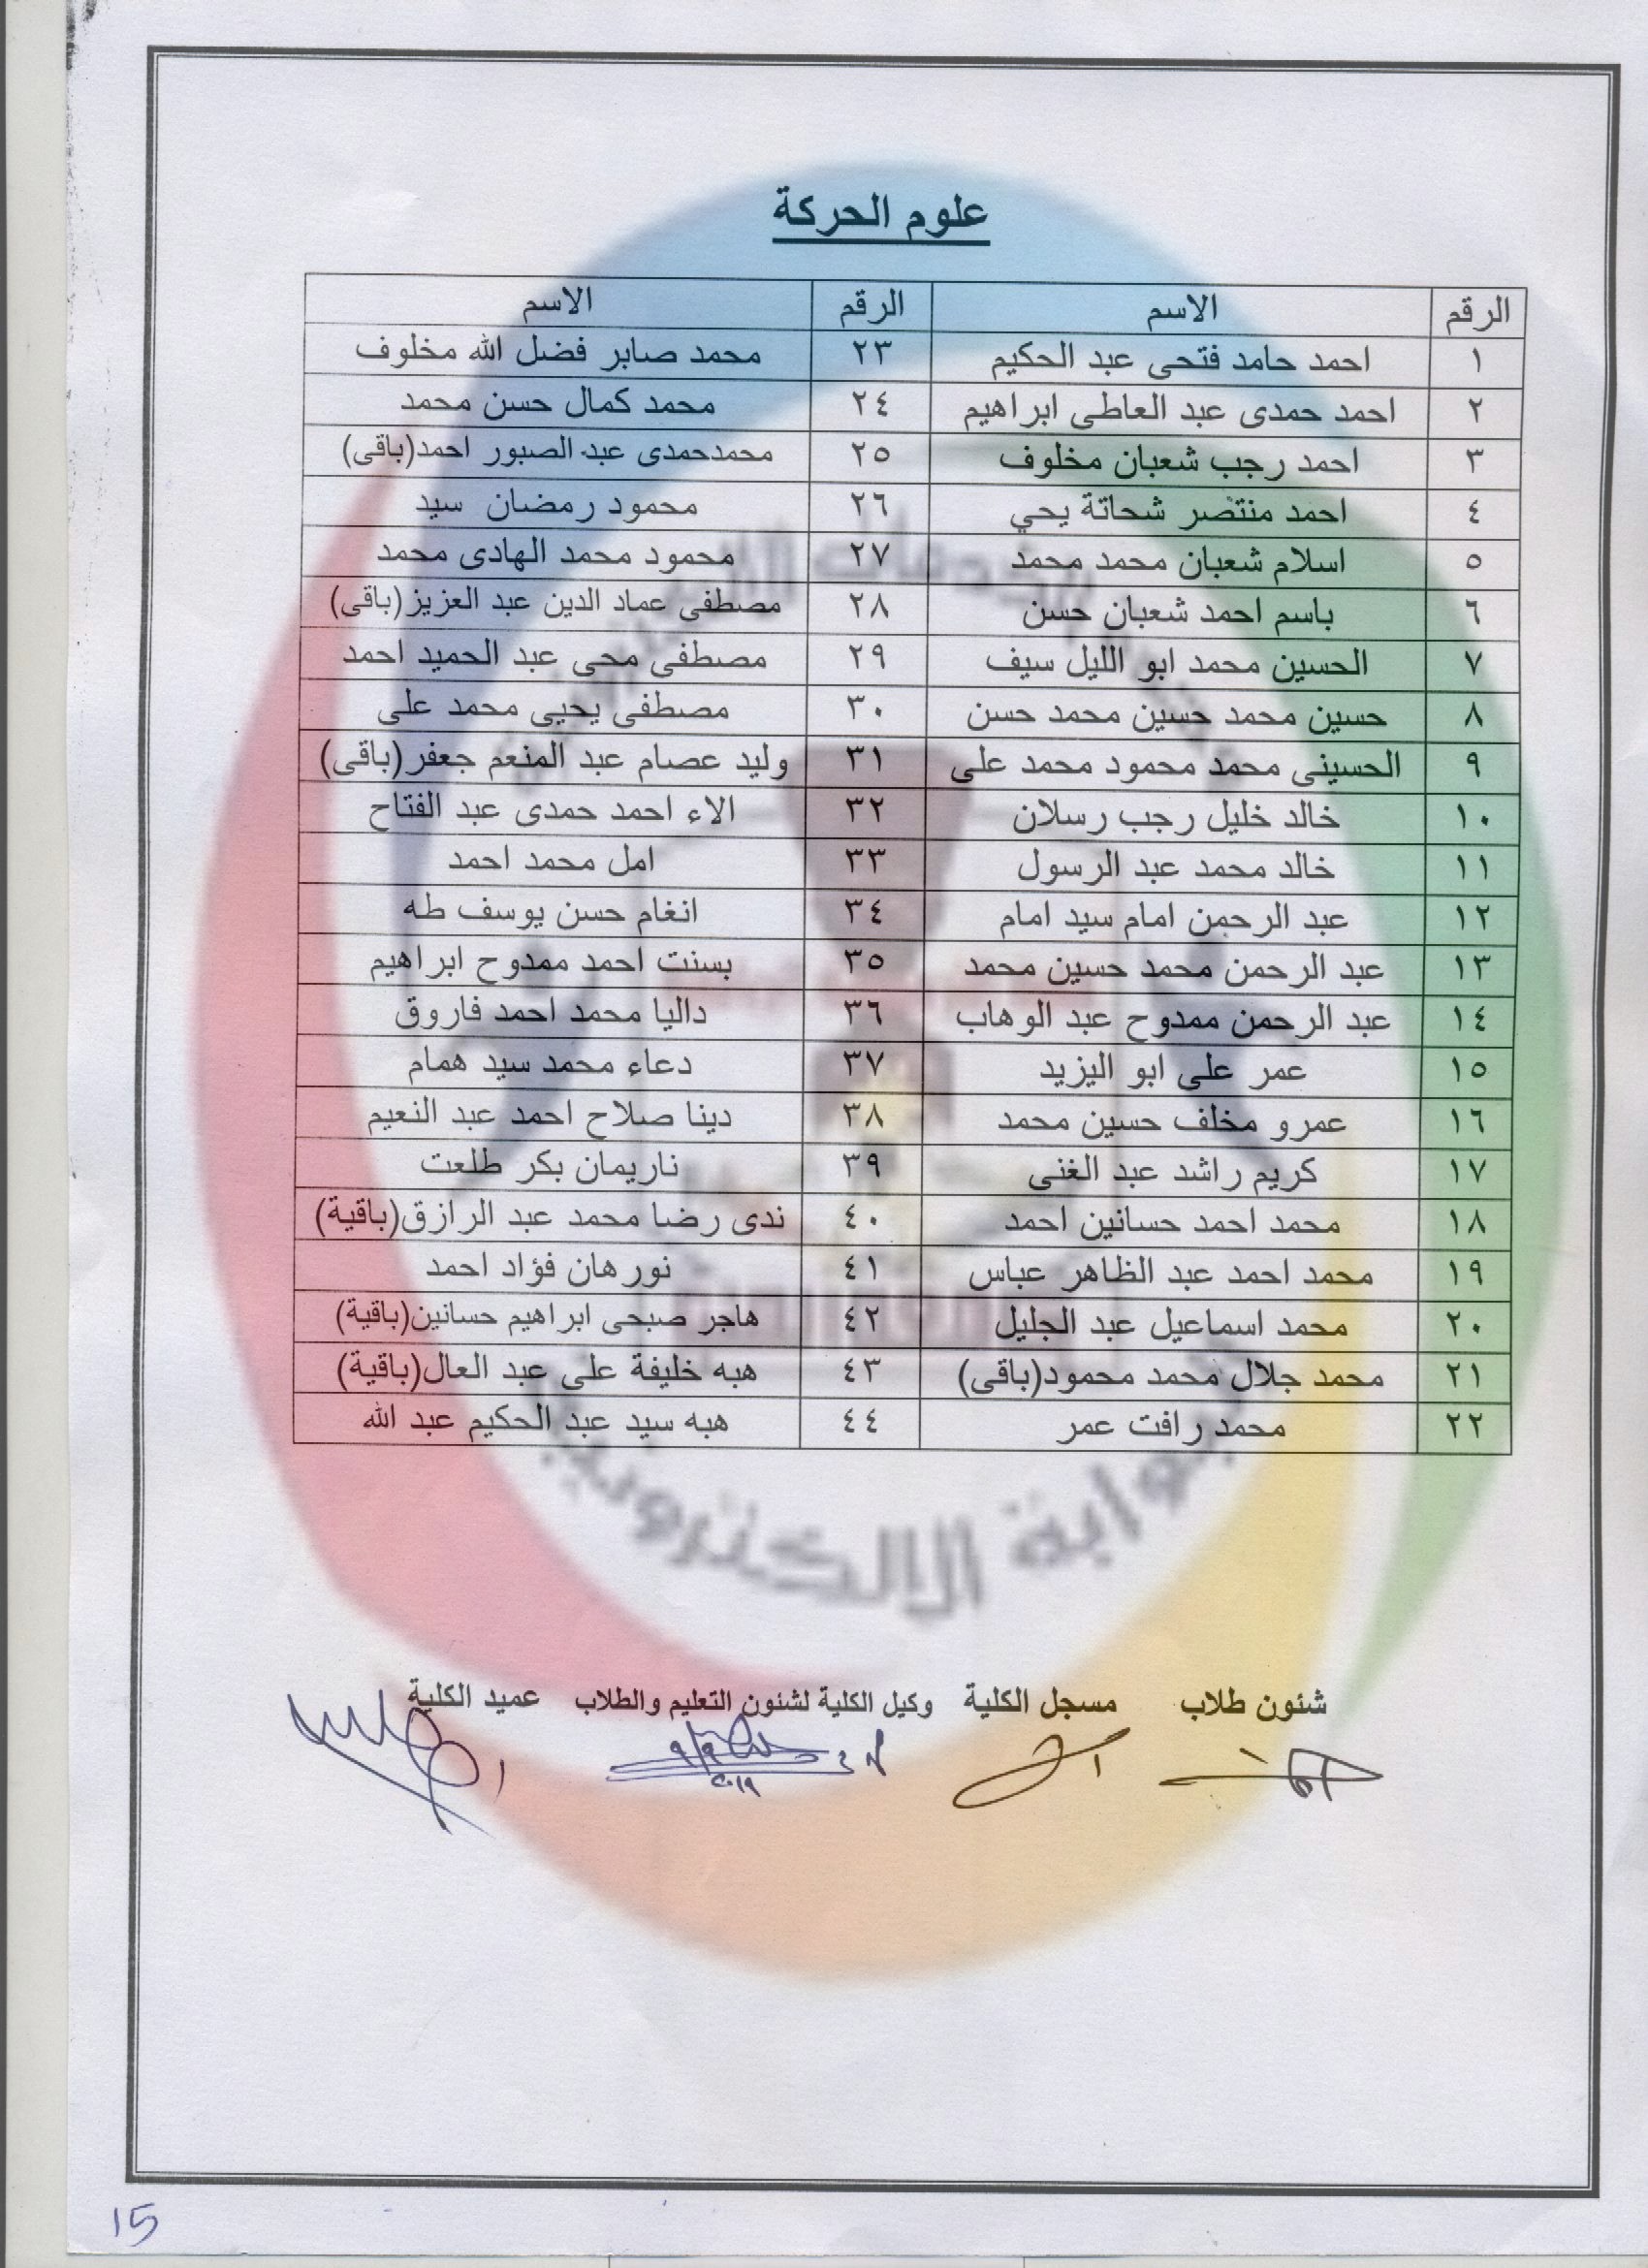 علوم الحركة
الرقم الاسم الرقم الاسم
١ احمد حامد فتحى عبد الحكيم ٢٣ محمد صابر فضل الله مخلوف
٢ احمد حمدى عبد العاطى ابراهيم ٢٤ محمد كمال حسن محمد
٣ احمد رجب شعبان مخلوف ٢٥ محمدحمدى عبد الصبور احمد(باقى)
٤ احمد منتصر شحاتة يحي ٢٦ محمود رمضان سيد
٥ اسلام شعبان محمد محمد ٢٧ محمود محمد الهادى محمد
٦ باسم احمد شعبان حسن ٢٨ مصطفى عماد الدين عبد العزيز(باقى)
٧ الحسين محمد ابو الليل سيف ٢٩ مصطفى محى عبد الحميد احمد
٨ حسين محمد حسين محمد حسن ٣٠ مصطفى يحيى محمد على
٩ الحسينى محمد محمود محمد على ٣١ وليد عصام عبد المنعم جعفر(باقى)
١٠ خالد خليل رجب رسلان ٣٢ الاء احمد حمدى عبد الفتاح
١١ خالد محمد عبد الرسول ٣٣ امل محمد احمد
١٢ عبد الرحمن امام سيد امام ٣٤ انغام حسن يوسف طه
١٣ عبد الرحمن محمد حسين محمد ٣٥ بسنت احمد ممدوح ابراهيم
١٤ عبد الرحمن ممدوح عبد الوهاب ٣٦ داليا محمد احمد فاروق
١٥ عمر على ابو اليزيد ٣٧ دعاء محمد سيد همام
١٦ عمرو مخلف حسين محمد ٣٨ دينا صلاح احمد عبد النعيم
١٧ كريم راشد عبد الغنى ٣٩ ناريمان بكر طلعت
١٨ محمد احمد حسانين احمد ٤٠ ندى رضا محمد عبد الرازق(باقية)
١٩ محمد احمد عبد الظاهر عباس ٤١ نورهان فؤاد احمد
٢٠ محمد اسماعيل عبد الجليل ٤٢ هاجر صبحى ابراهيم حسانين(باقية)
٢١ محمد جلال محمد محمود(باقى) ٤٣ هبه خليفة على عبد العال(باقية)
٢٢ محمد رافت عمر ٤٤ هبه سيد عبد الحكيم عبد الله
البوابة الالكترونية
شئون طلاب مسجل الكلية وكيل الكلية لشئون التعليم والطلاب عميد الكلية
15